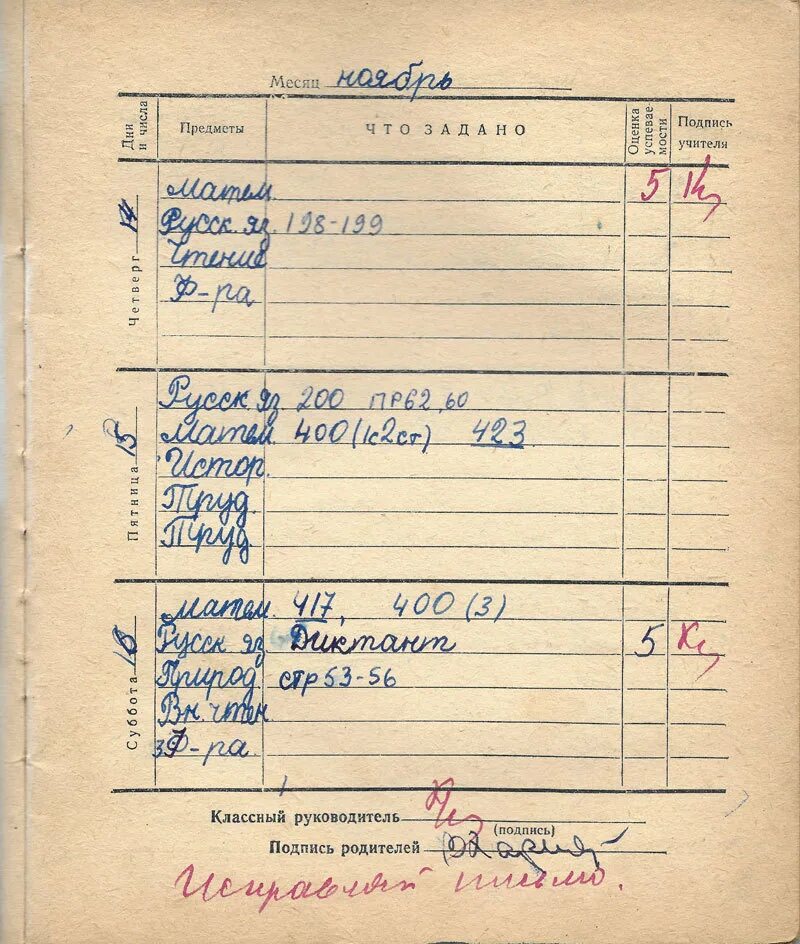 Месяц ноябрь
Дни и числа Предметы ЧТО ЗАДАНО Оценка успевае мости Подпись учителя
Четверг 14
Матем. 5
Русск. яз. 198-199
Чтение
Ф-ра
Пятница 15
Русск. яз. 200 ПР62,60
Матем. 400 (1с2ст) 423
Истор.
Труд.
Труд.
Суббота 16
Матем. 417, 400 (3)
Русск яз. Диктант 5
Природ. стр 53-56
Вн. чтен
Ф-ра.
Классный руководитель
(подпись)
Подпись родителей
Исправляй письмо.